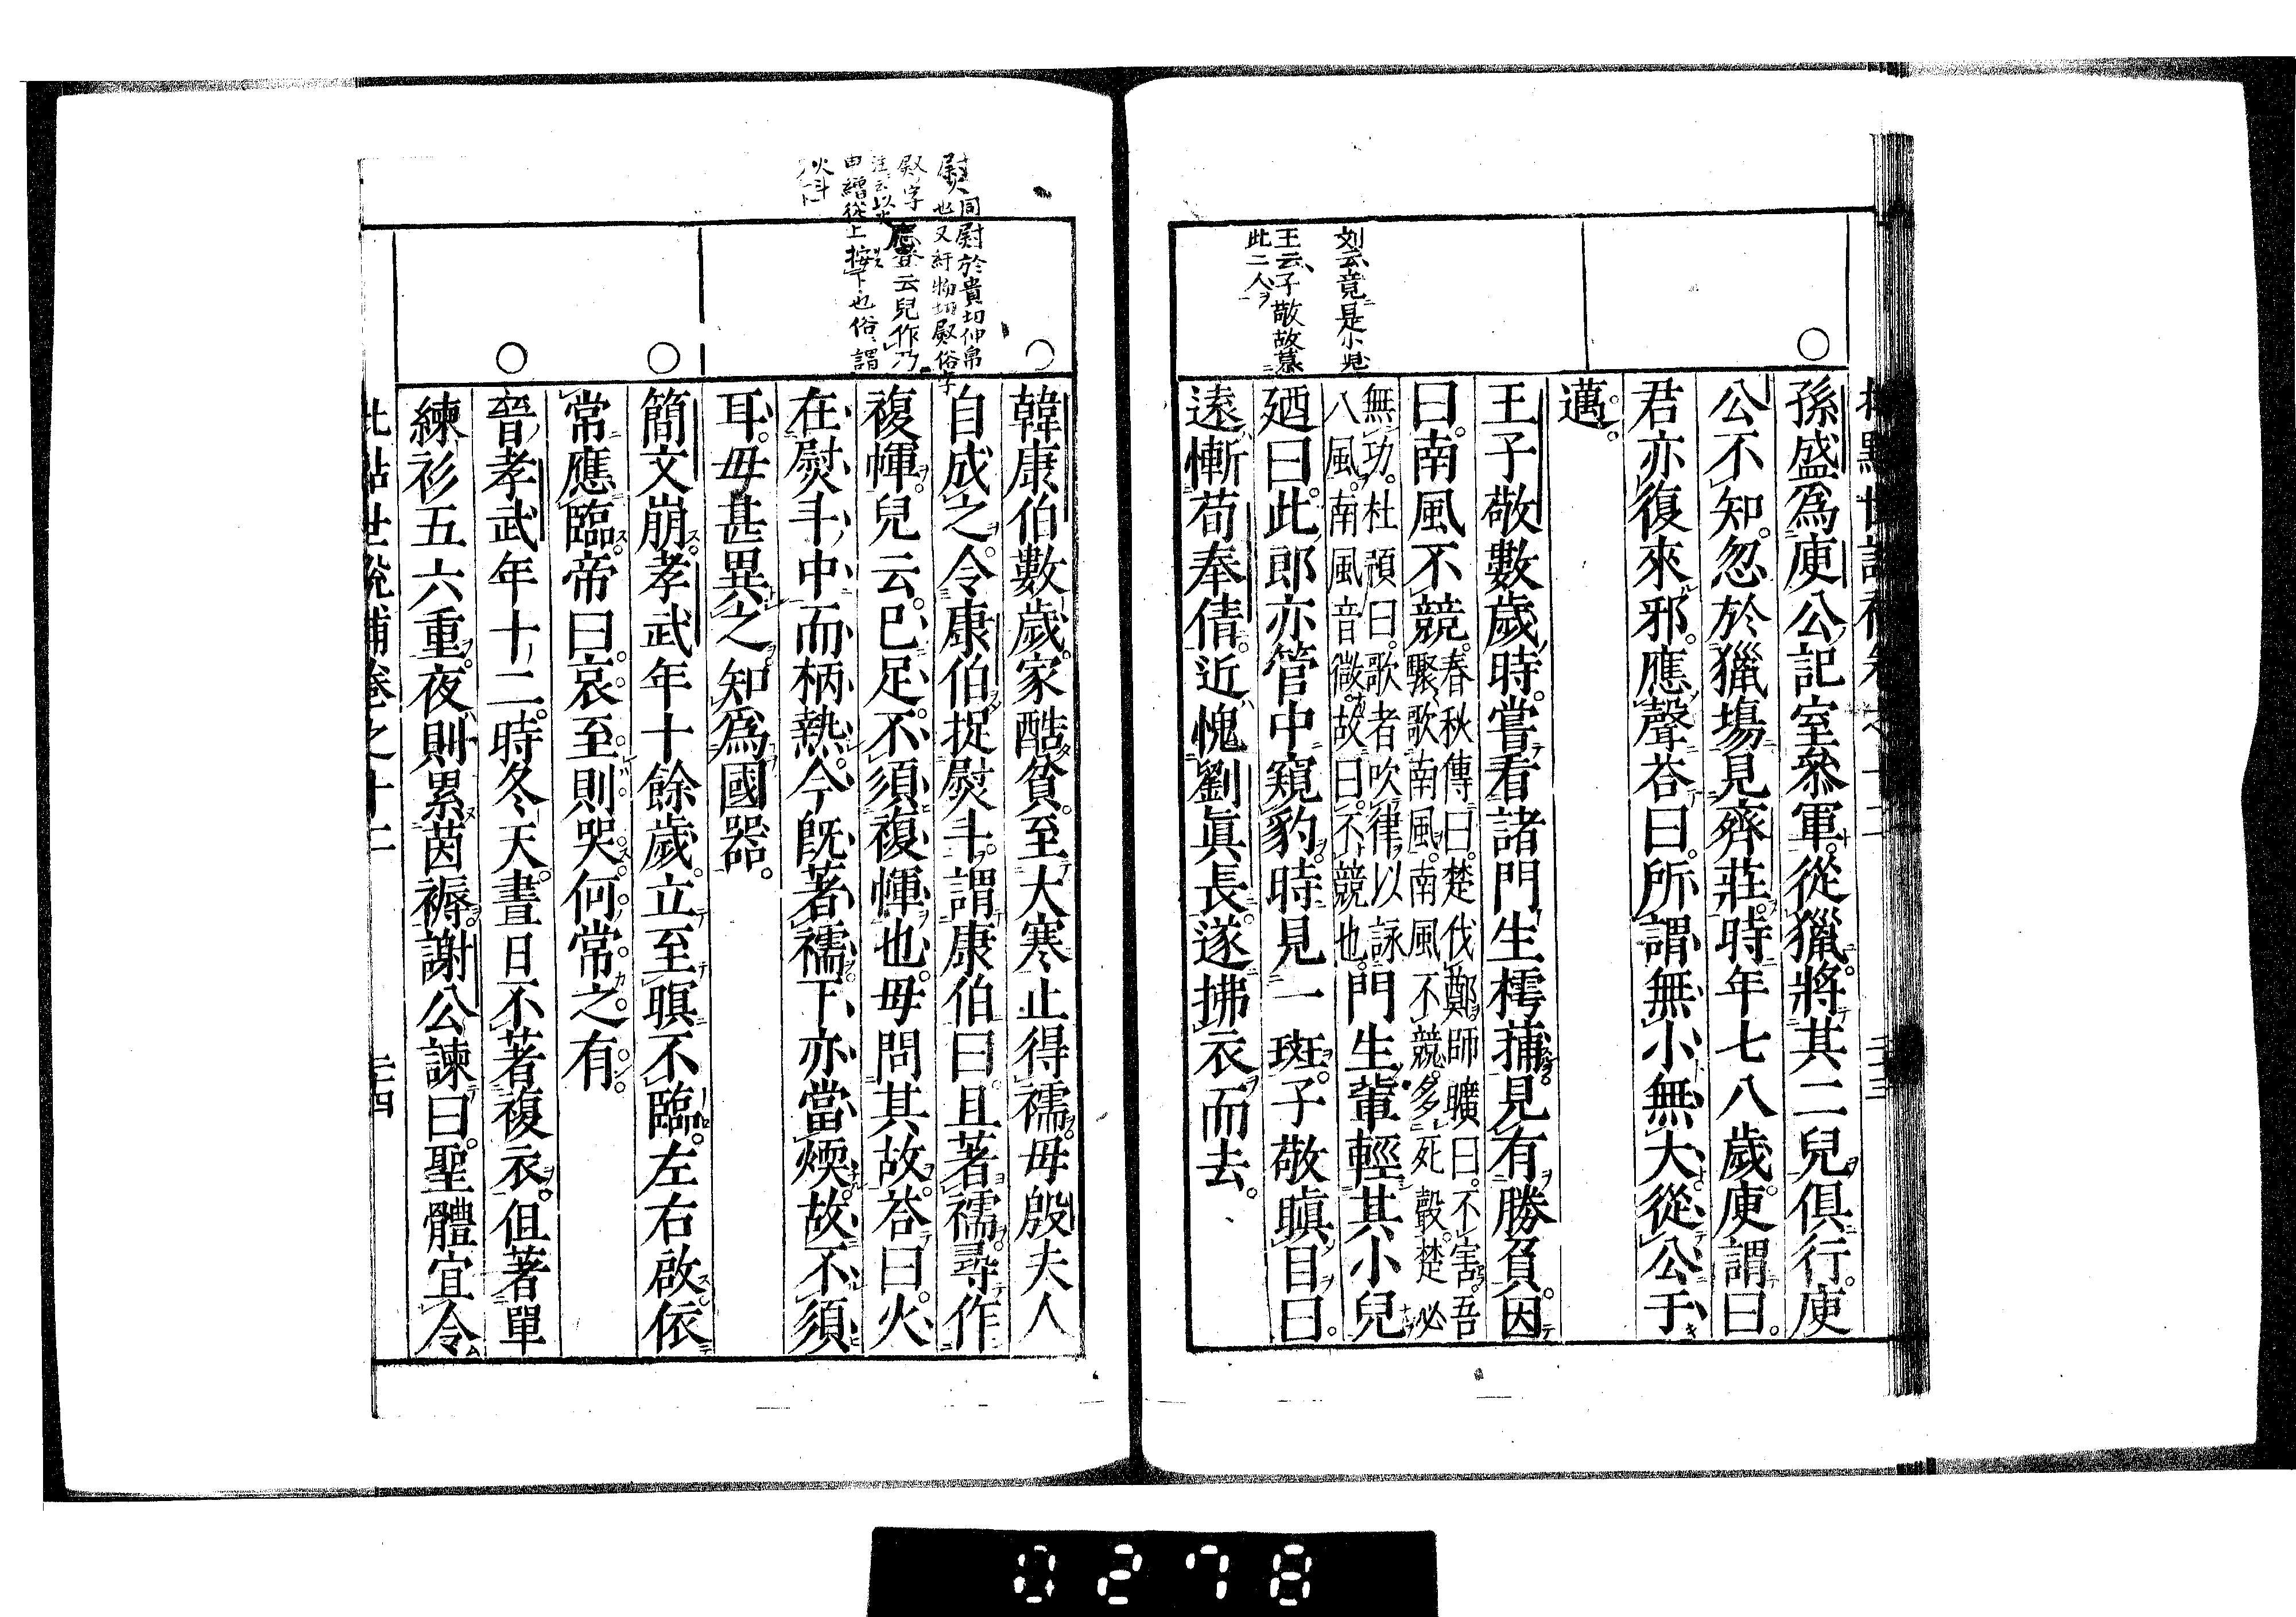 孫盛為庾公記室參軍。從獵。將其二兒俱行。庾
公不知。忽於獵場見齊莊。時年七八歲。庾謂曰。
君亦復來邪。應聲荅曰。所謂無小無大。從公于
邁。
王子敬數歲時。嘗看諸門生樗蒱。見有勝負。因
曰。南風不競。春秋傳曰。楚伐鄭。師曠曰。不害。吾
驟歌南風。南風不競。多死聲。楚必
無功。杜預曰。歌者吹律以詠
八風。南風音微。故曰。不競也。門生輩輕其小兒
廼曰。此郎亦管中窺豹。時見一斑。子敬瞋目曰。
遠慚荀奉倩。近愧劉眞長。遂拂衣而去。
刘云、竟是小児
王云、子敬故慕
此二人
韓康伯數歲。家酷貧。至大寒止得襦。母殷夫人
自成之。令康伯捉熨斗。謂康伯曰。且著襦。尋作
複㡓。兒云。已足。不須複㡓也。母問其故。荅曰。火
在熨斗中而柄熱。今旣著襦。下亦當煖。故不須
耳。母甚異之。知為國器。
簡文崩。孝武年十餘歲。立至暝不臨。左右啟依
常應臨。帝曰。哀至則哭。何常之有。
晉孝武年十二。時冬天。晝日不著複衣。但著單
練衫五六重。夜則累茵褥。謝公諫曰。聖體宜令
世說補卷之十二
二十四
熨同尉於貴切伸帛
也又紆物切㷉俗字
申繒從上按下也俗謂
火斗
0278